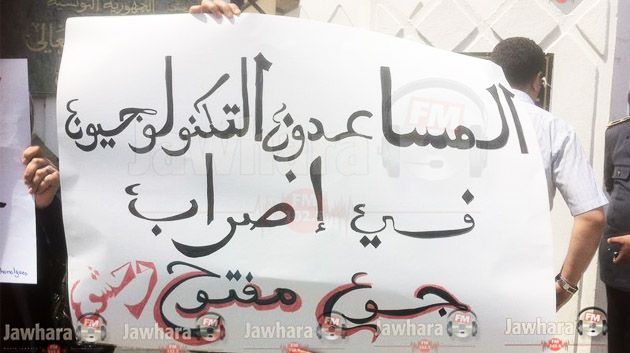 الجمهورية التونسية
المساعدون التكنولوجيون
في إضراب
جوع مفتوح وحشي
Jawhara FM Jawhara FM Jawhara FM Jawhara FM Jawhara FM